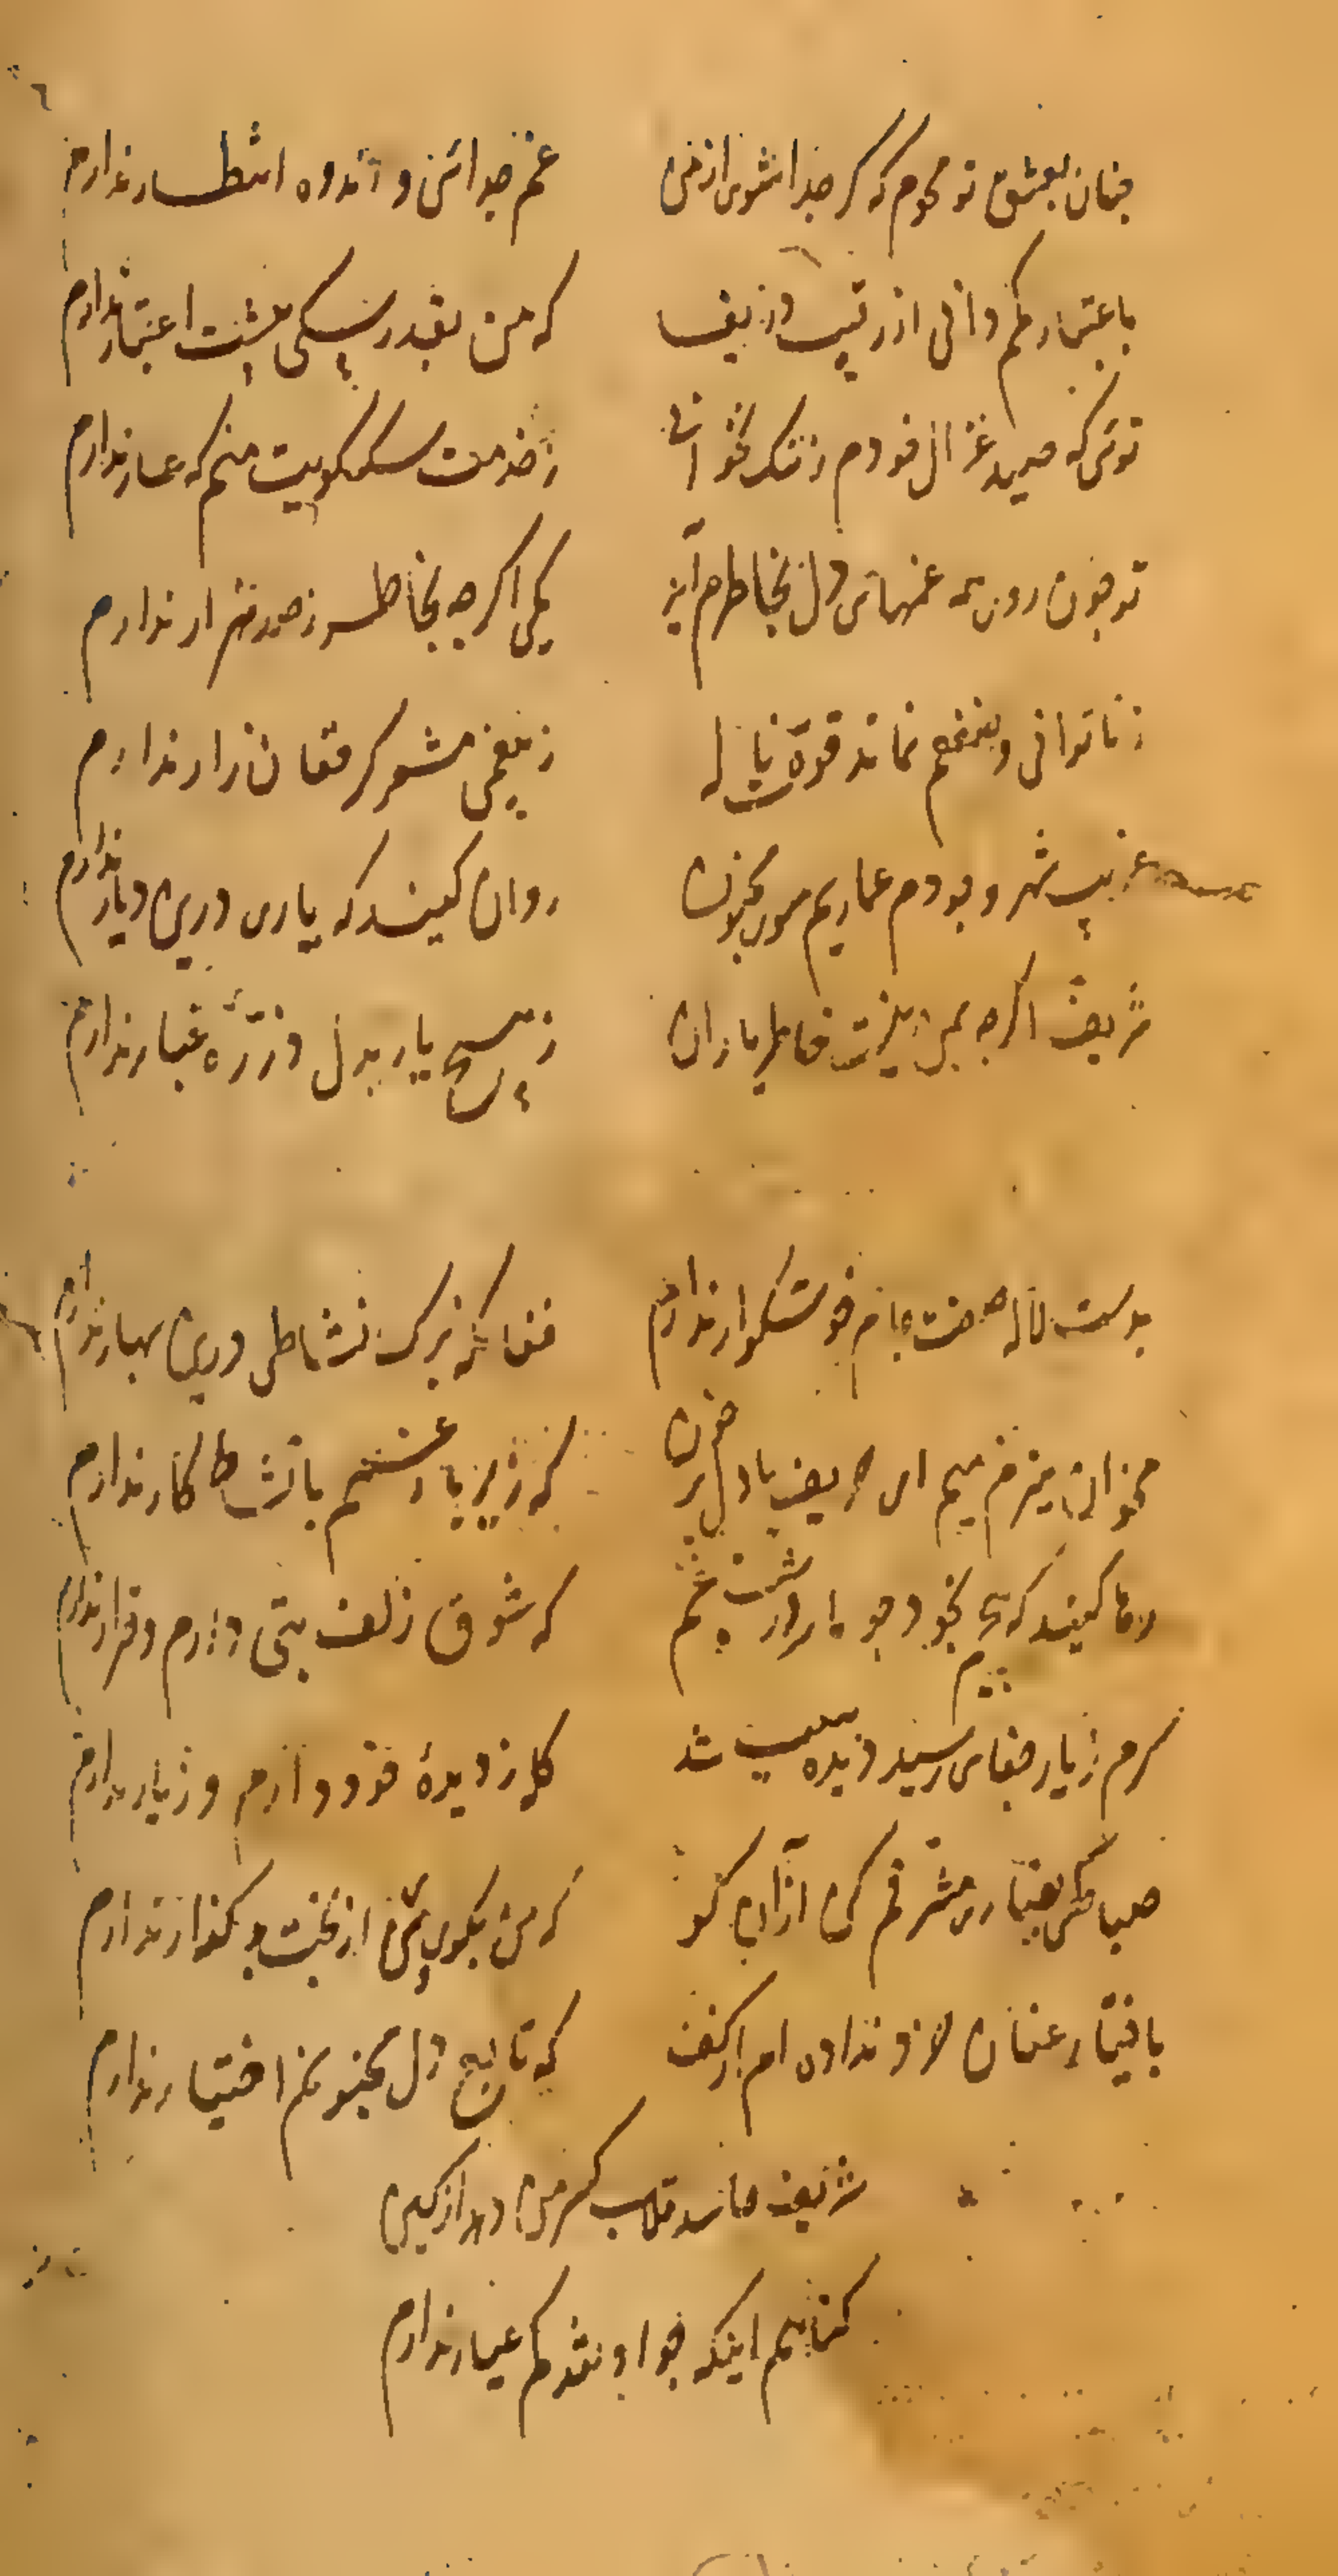 چنان بعشق تو محوم که گر جدا شوی از من
غم جدائی و اندوه انتظار ندارم
باعتبار کم دانی از رقیب و زیف
که من بقدر سگی پیشت اعتبار ندارم
توئی که صید غزال خودم ز ننگ نخوانی
ز خدمت سگ کویت منم که عار ندارم
تو چون روی همه غمهای دل بخاطرم آید
یکی اگرچه بخاطر ز صد هزار ندارم
ز ناتوانی و ضعفم نماند قوة ناله
ز بیغمی مشمر گر فغان زار ندارم
غریب شهر وجودم عماریم سوی مجنون
روان کنید که یاری درین دیار ندارم
شریف اگرچه خاطر یاران
ز هیچ یار بدل ذرّهٔ غبار ندارم
بدست لاله صفت جام خوشگوار ندارم
فغان که برگ نشاطی درین بهار ندارم
مخوان ببزم میم ای حریف با دل پر خون
که زیر بار غمم با نشاط کار ندارم
رها کنید که بخود چو مار در شب پیچم
که شوق زلف بتی دارم و قرار ندارم
سرم ز یار جفای رسید دیده سبب شد
گله ز دیدهٔ خود دارم و ز یار ندارم
صبا بغباری مشرفم کن از آن کو
که من بکوی وی از بخت بد گذار ندارم
باختیار عنان لا نداده ام از کف
که تابع دل مجنونم اختیار ندارم
شریف حاسد قلاب کسر من دهد از کین
گناهم اینکه چو او نقد کم عیار ندارم